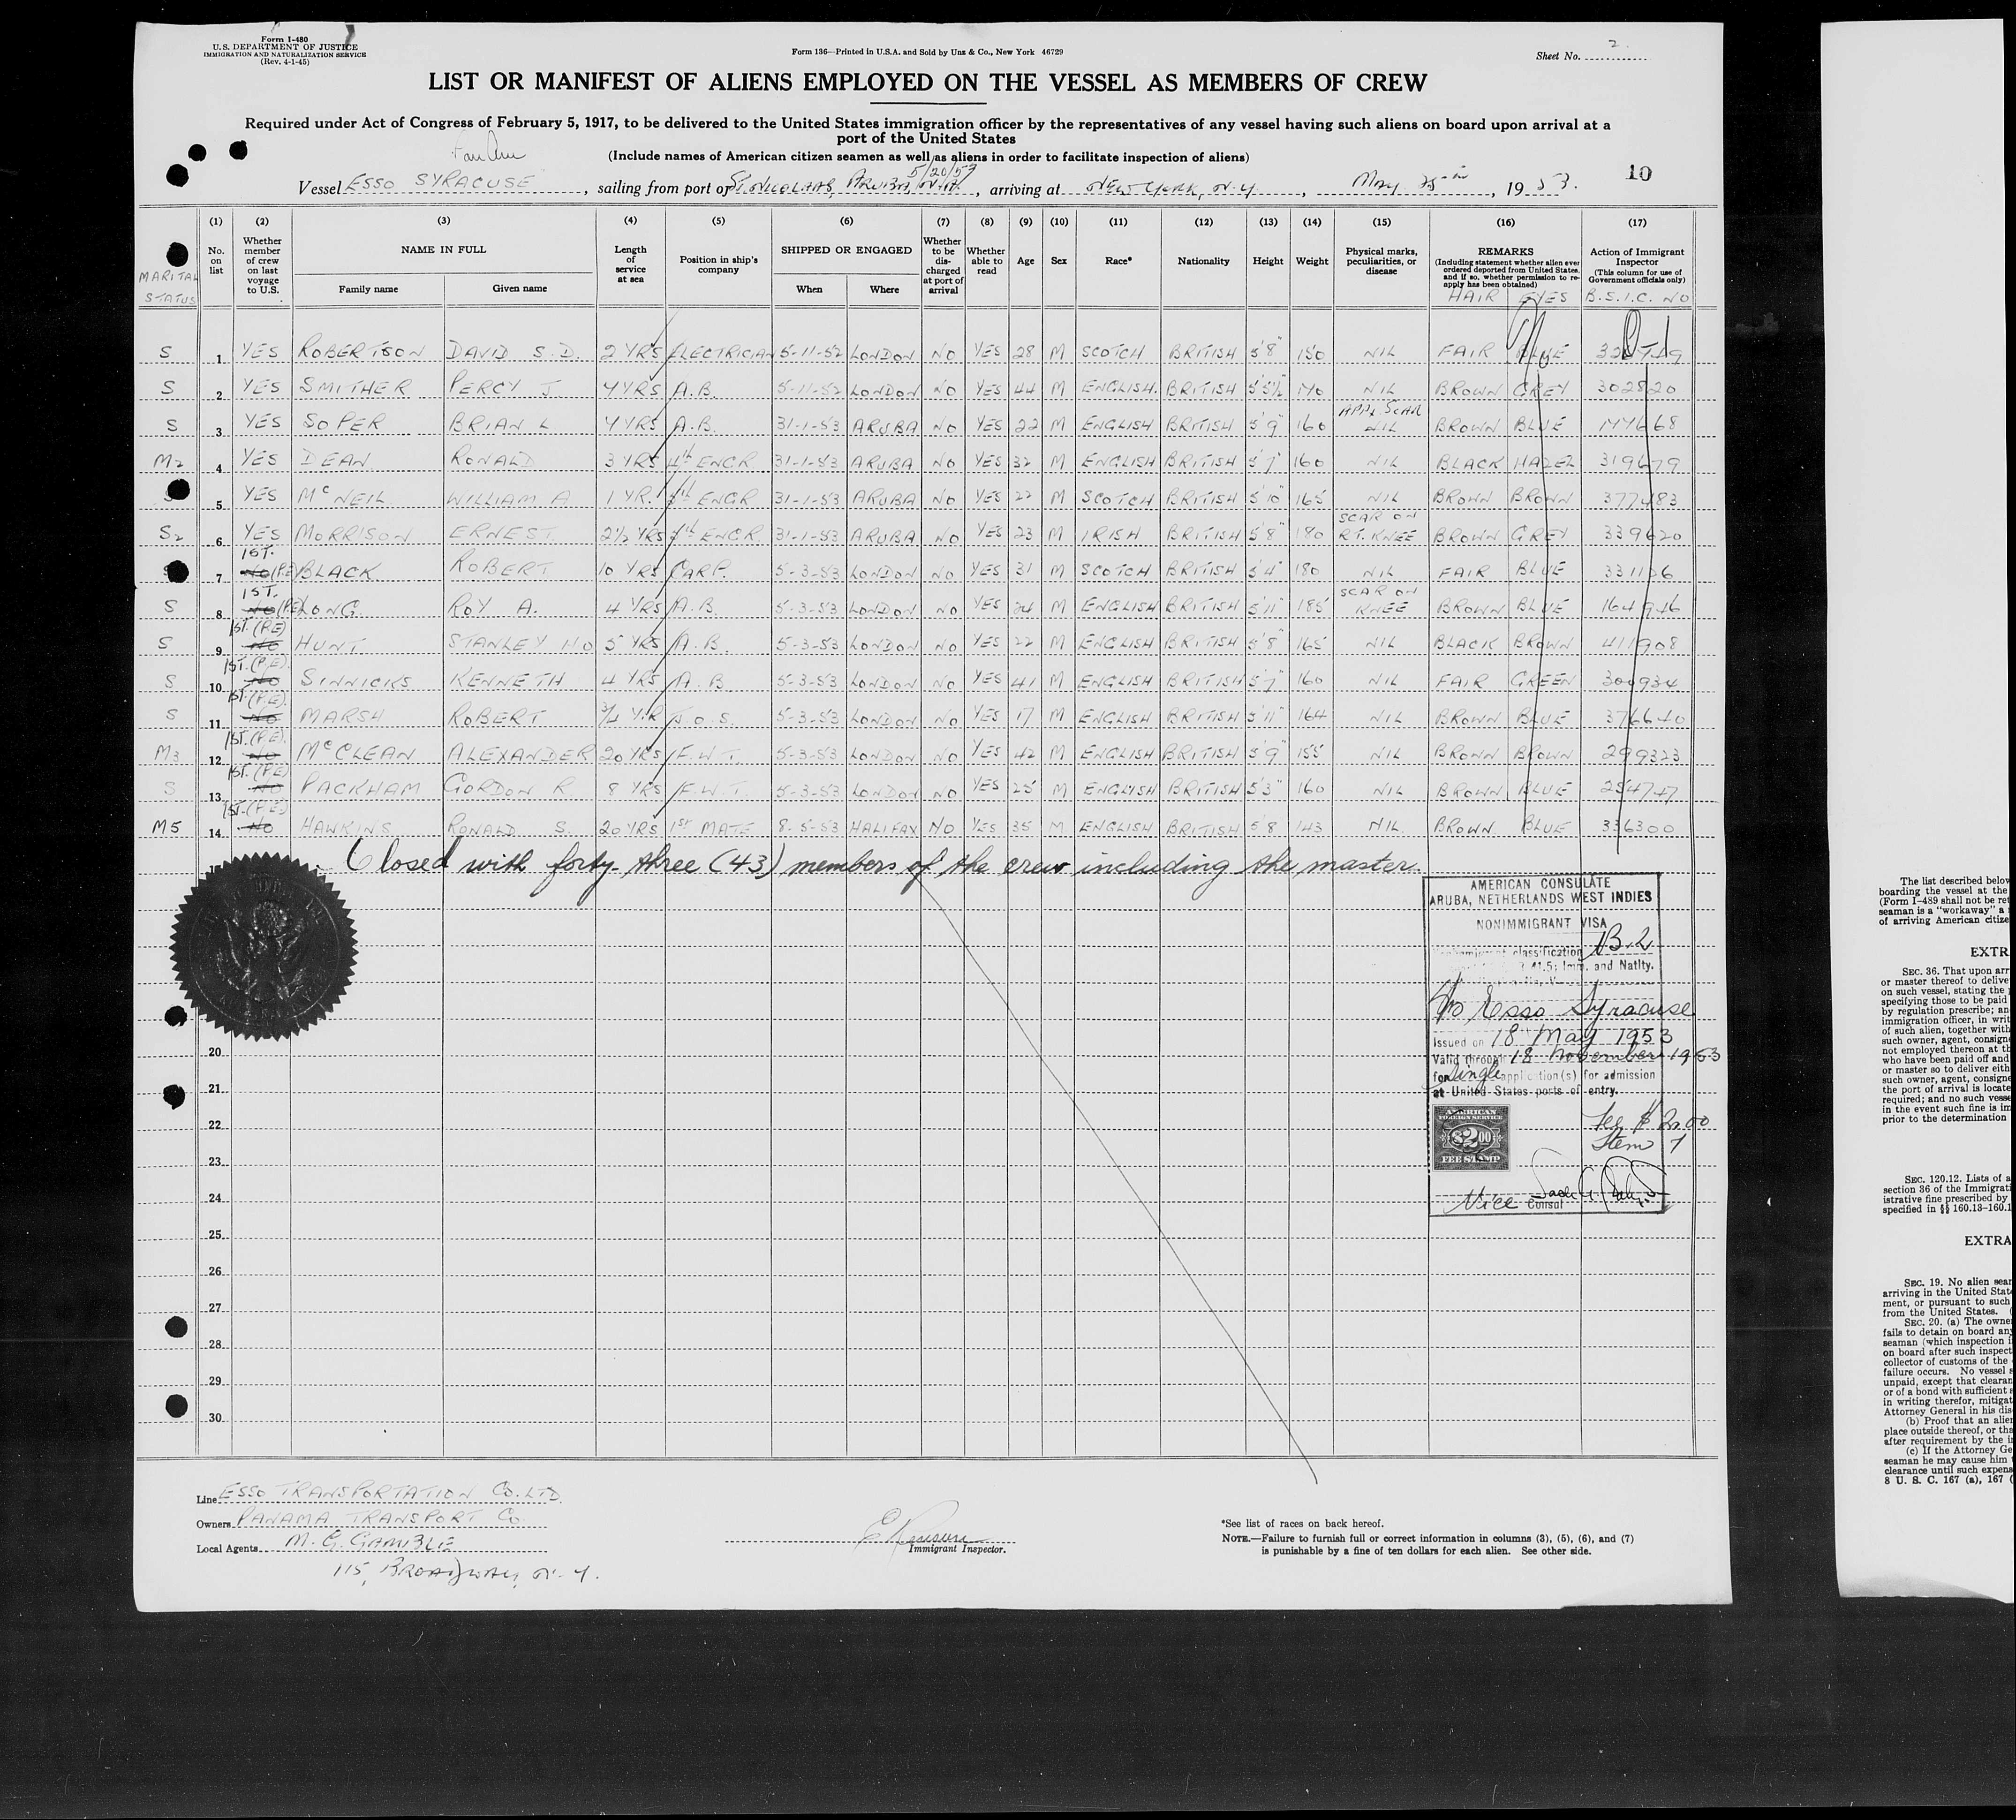 Form I-480
U.S. DEPARTMENT OF JUSTICE
IMMIGRATION AND NATURALIZATION SERVICE
(Rev. 4-1-45)
Form 136—Printed in U.S.A. and Sold by Unz & Co., New York 46729
Sheet No. 2
LIST OR MANIFEST OF ALIENS EMPLOYED ON THE VESSEL AS MEMBERS OF CREW
Required under Act of Congress of February 5, 1917, to be delivered to the United States immigration officer by the representatives of any vessel having such aliens on board upon arrival at a
port of the United States
(Include names of American citizen seamen as well as aliens in order to facilitate inspection of aliens)
5/20/53
Vessel ESSO SYRACUSE, sailing from port of ST. NICOLAAS, ARUBA, N.A., arriving at NEW YORK, N.Y., May 25th, 1953.
10
MARITAL STATUS
(1) No. on list
(2) Whether member of crew on last voyage to U.S.
(3) NAME IN FULL Family name Given name
(4) Length of service at sea
(5) Position in ship's company
(6) SHIPPED OR ENGAGED When Where
(7) Whether to be discharged at port of arrival
(8) Whether able to read
(9) Age
(10) Sex
(11) Race*
(12) Nationality
(13) Height
(14) Weight
(15) Physical marks, peculiarities, or disease
(16) REMARKS (Including statement whether alien ever ordered deported from United States, and if so, whether permission to reapply has been obtained) HAIR EYES
(17) Action of Immigrant Inspector (This column for use of Government officials only) B.S.I.C. NO
S 1 YES ROBERTSON DAVID S.D. 2 YRS ELECTRICIAN 5-11-52 LONDON NO YES 28 M SCOTCH BRITISH 5'8" 150 NIL FAIR BLUE
S 2 YES SMITHER PERCY J 4 YRS A.B. 5-11-52 LONDON NO YES 44 M ENGLISH. BRITISH 5'5½" 170 NIL BROWN GREY 302820
S 3 YES SOPER BRIAN L 4 YRS A.B. 31-1-53 ARUBA NO YES 22 M ENGLISH BRITISH 5'9" 160 APP. SCAR NIL BROWN BLUE
M2 4 YES DEAN RONALD 3 YRS 4th ENGR 31-1-53 ARUBA NO YES 32 M ENGLISH BRITISH 5'7" 160 NIL BLACK HAZEL 319679
5 YES McNEIL WILLIAM A 1 YR. 5th ENGR 31-1-53 ARUBA NO YES 22 M SCOTCH BRITISH 5'10" 165 NIL BROWN BROWN 377483
S2 6 YES MORRISON ERNEST 2½ YRS 5th ENGR 31-1-53 ARUBA NO YES 23 M IRISH BRITISH 5'8" 180 SCAR ON RT. KNEE BROWN GREY 339620
7 1ST. NO (P.E) BLACK ROBERT 10 YRS CARP. 5-3-53 LONDON NO YES 31 M SCOTCH BRITISH 5'4" 180 NIL FAIR BLUE 331126
S 8 1ST. NO (P.E) LONG ROY A. 4 YRS A.B. 5-3-53 LONDON NO YES 24 M ENGLISH BRITISH 5'11" 185 SCAR ON KNEE BROWN BLUE 164946
S 9 1ST. (P.E) NO HUNT STANLEY 5 YRS A.B. 5-3-53 LONDON NO YES 22 M ENGLISH BRITISH 5'8" 165 NIL BLACK BROWN 411908
S 10 1ST. (P.E) NO SINNICKS KENNETH 4 YRS A.B. 5-3-53 LONDON NO YES 41 M ENGLISH BRITISH 5'7" 160 NIL FAIR GREEN 300934
S 11 1ST. (P.E) NO MARSH ROBERT ¾ YR J.O.S. 5-3-53 LONDON NO YES 17 M ENGLISH BRITISH 5'11" 164 NIL BROWN BLUE 376640
M3 12 1ST. (P.E) NO McCLEAN ALEXANDER 20 YRS F.W.T. 5-3-53 LONDON NO YES 42 M ENGLISH BRITISH 5'9" 155 NIL BROWN BROWN 299323
S 13 1ST. (P.E) NO PACKHAM GORDON R 8 YRS F.W.T. 5-3-53 LONDON NO YES 25 M ENGLISH BRITISH 5'3" 160 NIL BROWN BLUE 254747
M5 14 1ST. (P.E) NO HAWKINS RONALD S. 20 YRS 1st MATE 8-5-53 HALIFAX NO YES 35 M ENGLISH BRITISH 5'8 143 NIL. BROWN BLUE 336300
Closed with forty-three (43) members of the crew including the master.
AMERICAN CONSULATE
ARUBA, NETHERLANDS WEST INDIES
NONIMMIGRANT VISA
classification B-2
41.5; Imm. and Natlty.
Esso Syracuse
Issued on 18 May 1953
Valid through 18 November 1953
for Single application(s) for admission
at United States ports of entry.
AMERICAN FOREIGN SERVICE
$2.00
FEE STAMP
Fee $2.00
Item 7
Vice Consul
20
21
22
23
24
25
26
27
28
29
30
Line ESSO TRANSPORTATION CO. LTD.
Owners PANAMA TRANSPORT CO.
Local Agents M. G. GAMBLE
115, BROADWAY, N.Y.
Immigrant Inspector.
*See list of races on back hereof.
NOTE.—Failure to furnish full or correct information in columns (3), (5), (6), and (7)
is punishable by a fine of ten dollars for each alien. See other side.
The list described below
boarding the vessel at the
(Form I-489 shall not be ret
seaman is a "workaway" a
of arriving American citize
EXTR
SEC. 36. That upon arr
or master thereof to delive
on such vessel, stating the
specifying those to be paid
by regulation prescribe; an
immigration officer, in writ
of such alien, together with
such owner, agent, consign
not employed thereon at th
who have been paid off and
or master so to deliver eith
such owner, agent, consigne
the port of arrival is locate
required; and no such vesse
in the event such fine is im
prior to the determination
SEC. 120.12. Lists of a
section 36 of the Immigrati
istrative fine prescribed by
specified in §§ 160.13-160.1
EXTRA
SEC. 19. No alien sear
arriving in the United Stat
ment, or pursuant to such
from the United States. (
SEC. 20. (a) The owne
fails to detain on board any
seaman (which inspection i
on board after such inspect
collector of customs of the
failure occurs. No vessel s
unpaid, except that clearan
or of a bond with sufficient s
in writing therefor, mitigat
Attorney General in his dis
(b) Proof that an alien
place outside thereof, or tha
after requirement by the i
(c) If the Attorney Ge
seaman he may cause him
clearance until such expens
8 U. S. C. 167 (a), 167 (